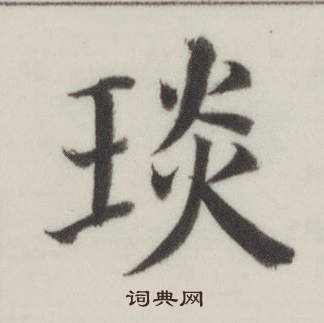 琰
词典网